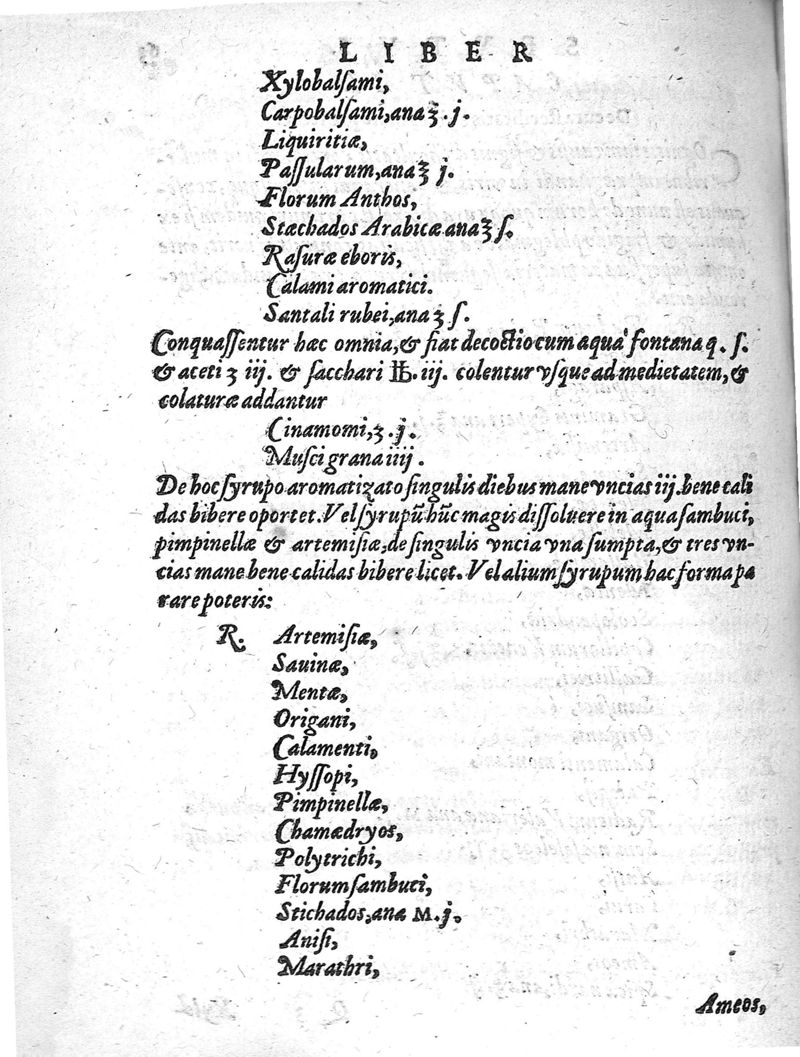 LIBER
Xylobalſami,
Carpobalſami, ana ʒ. j.
Liquiritiæ,
Paſſularum, ana ʒ j.
Florum Anthos,
Stæchados Arabicæ ana ʒ ſ.
Raſuræ eboris,
Calami aromatici.
Santali rubei, ana ʒ ſ.
Conquaſſentur hæc omnia, & fiat decoctio cum aqua fontana q. ſ.
& aceti ʒ iij. & ſacchari ℔. iij. colentur vſque ad medietatem, &
colaturæ addantur
Cinamomi, ʒ. j.
Muſci grana iiij.
De hoc ſyrupo aromatizato ſingulis diebus mane vncias iij. bene cali
das bibere oportet. Vel ſyrupū hūc magis diſſoluere in aqua ſambuci,
pimpinellæ & artemiſiæ, de ſingulis vncia vna ſumpta, & tres vn-
cias mane bene calidas bibere licet. Vel alium ſyrupum hac forma pa
rare poteris:
R. Artemiſiæ,
Sauinæ,
Mentæ,
Origani,
Calamenti,
Hyſſopi,
Pimpinellæ,
Chamædryos,
Polytrichi,
Florum ſambuci,
Stichados, ana M. j.
Aniſi,
Marathri,
Ameos,